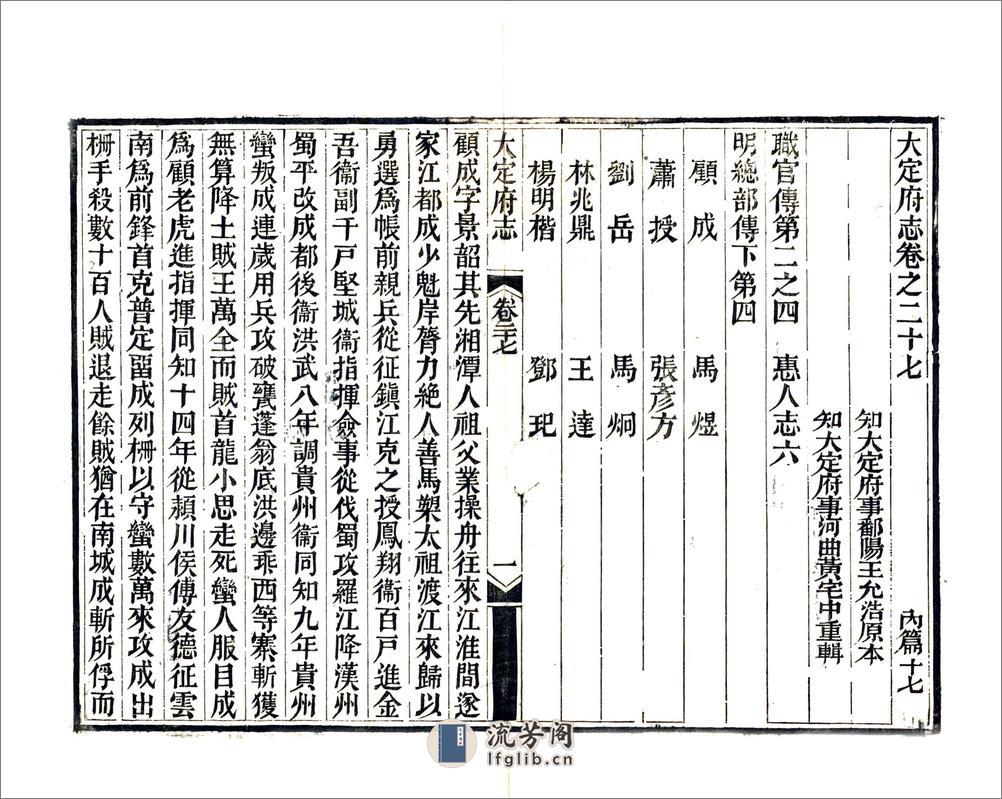 大定府志卷之二十七
內篇十七
知大定府事鄱陽王允浩原本
知大定府事河曲黃宅中重輯
職官傳第二之四 惠人志六
明總部傳下第四
顧成 馬煜
蕭授 張彥方
劉岳 馬炯
林兆鼎 王達
楊明楷 鄧玘
大定府志 卷二十七 一
顧成字景韶其先湘潭人祖父業操舟往來江淮間遂
家江都成少魁岸膂力絕人善馬槊太祖渡江來歸以
勇選爲帳前親兵從征鎮江克之授鳳翔衞百戶進金
吾衞副千戶堅城衞指揮僉事從伐蜀攻羅江降漢州
蜀平改成都後衞洪武八年調貴州衞同知九年貴州
蠻叛成連歲用兵攻破甕蓬翁底洪邊乖西等寨斬獲
無算降土賊王萬全而賊首龍小思走死蠻人服目成
爲顧老虎進指揮同知十四年從潁川侯傅友德征雲
南爲前鋒首克普定留成列柵以守蠻數萬來攻成出
柵手殺數十百人賊退走餘賊猶在南城成斬所俘而
流芳阁
lfglib.cn